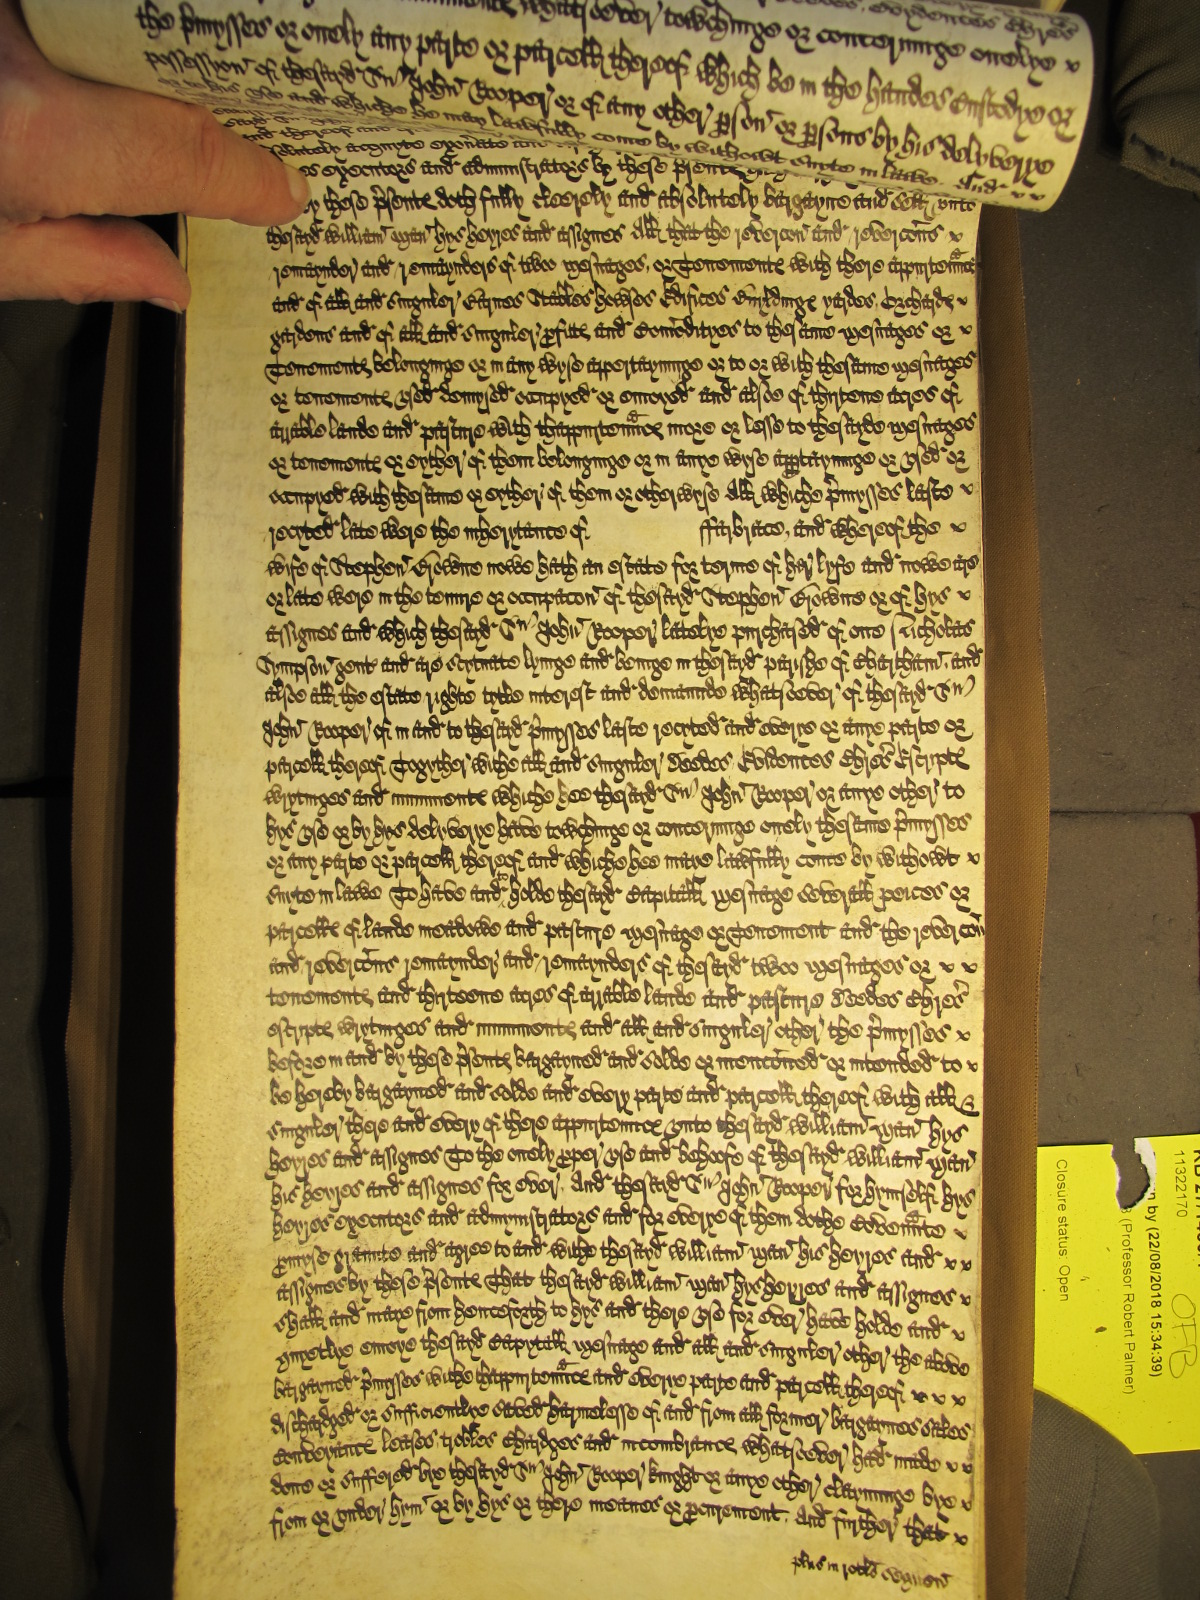 munimente whatsoever towchinge or concerninge onelye
the p̃mysses or onely any parte or parcell thereof which be in the handes Custodye or
possessyon of thesayd Sr John Rooper or of any other p̱son or p̱sons by his delyverye
and whiche he may lawfullly come by withowt suete in lawe. And
executors and administrators by these p̃sente
by these p̃sente doth fully cleerely and absolutely bargayne and sell vnto
thesayd william man hys heyres and assignes All that the revercon and revercons
remaynder and remaynders of twoo mesuages or Tenemente with there appurtennce
and of all and singuler Barnes Stables howses Edifices Buyldinge yardes Orcharde
gardens and of all and singuler p̱fite and Comodityes to thesame mesuages or
Tenemente belonginge or in any wyse appertayninge or to or with thesame mesuages
or tenemente vsed demysed occupyed or enioyed and also of thirtene acres of
arrable lande and pasture with thappurtennce more or lesse to thesayde mesuages
or tenemente or eyther of them belonginge or in anye wyse app̱tayninge or vsed or
occupyed with thesame or eyther of them or otherwyse All whiche p̃mysses laste
recyted late were the inherytance of ffarbrace, and whereof the
wife of Stephen Browne nowe hath an estate for terme of her lyfe and nowe are
or late were in the tenure or occupacon of thesayd Stephen Browne or of hys
assignes and which thesayd Sr John Rooper latelye purchased of one Nicholas
Sympson gent and are scytuate lyinge and beinge in thesayd parishe of Chartham, and
also all the estate righte tytle interest and demaunde whatsoever of thesayd Sr
John Rooper of in and to thesayd p̃mysses laste recyted and everye or anye parte or
parcell thereof Together withe all and singuler Deedes Evidences Chres Escripte
wrytinges and munimente whiche hee thesayd Sr John Rooper or anye other to
hys vse or by hys delyverye have towchinge or concerninge onely thesame p̃mysses
or any parte or parcell thereof and whiche hee maye lawfullly come by withowt
suyte in lawe To have and to holde thesayd Capitall mesuage severall peices or
parcelle of lande meadowe and pasture mesuage or Tenement and the revercon
and revercons remaynder and remaynders of thesayd twoo mesuages or
tenemente and thirteene acres of arrable lande and pasture Deedes Chres
escripte wrytinges and munimente and all and singuler other the p̃mysses
before in and by these p̃sente bargayned and solde or mencõned or intended to
be hereby bargayned and solde and every parte and parcell thereof with all &
singuler there and every of there appurtennce vnto thesayd william man hys
heyres and assignes To the onely p̱per vse and behoofe of thesayd william man
his heyres and assignes for ever. And thesayd Sr John Rooper for hymselfe hys
heyres executors and admynistrators and for everye of them dothe Covennte
p̱myse graunte and agree to and withe thesayd william man his heyres and
assignes by these p̃sente That thesayd william man hys heyres and assignes
shall and maye from henceforth to hys and there vse for ever have holde and
quyetlye enioye thesayd Capytall mesuage and all and singuler other the above
bargayned p̃mysses withe thappurtennce and everye parte and parcell thereof
dischardged or sufficientlye saved harmelesse of and from all former bargaines sales
Conveyance leases trobles Chardges and incombrance whatsoever had made
done or suffered bye thesayd Sr John Rooper knight or anye other clayminge bye
from or vnder hym or by hys or there meanes or p̱curement. And further that
plus in rotlo
KB 27/
11322170
by (22/08/2018 15:34:39)
(Professor Robert Palmer)
Closure status: Open